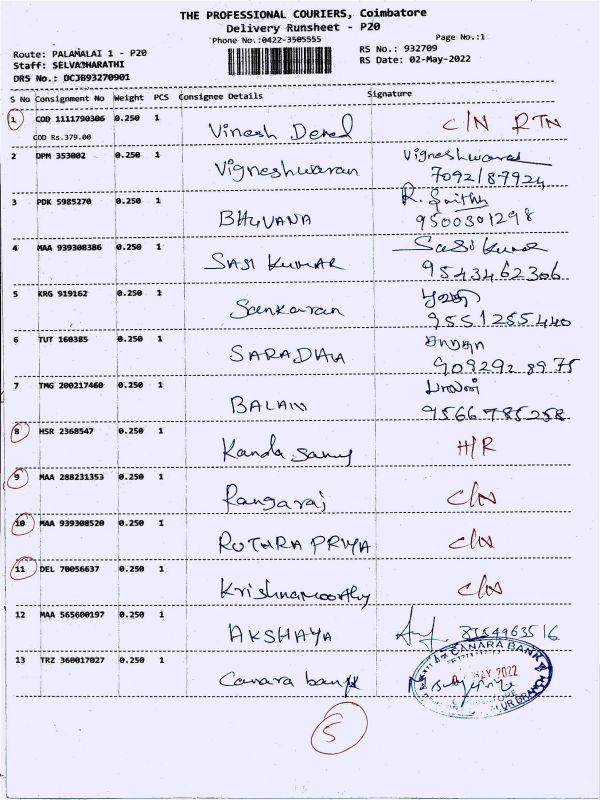 THE PROFESSIONAL COURIERS, Coimbatore
Delivery Runsheet - P20
Phone No:0422-3505555
Page No.:1
Route: PALAMALAI 1 - P20
RS No.: 932709
Staff: SELVABHARATHI
RS Date: 02-May-2022
DRS No.: DCJB93270901
S No Consignment No Weight PCS Consignee Details Signature
1 COD 1111790306 0.250 1 Vinesh C/N RTN
COD Rs.379.00
2 DPM 353002 0.250 1 Vigneshwaran Vigneshwaran
7092187924
3 PDK 5985270 0.250 1 BHUVANA R.
9500301298
4 MAA 939308386 0.250 1 SASI KUMAR Sasi Kumar
9543462306
5 KRG 919162 0.250 1 Sankaran
9551255440
6 TUT 160385 0.250 1 SARADHA சாரதா
9092928975
7 TMG 200217460 0.250 1 BALAN பாலன்
9566785258
8 HSR 2368547 0.250 1 Kanda Samy H/R
9 MAA 288231353 0.250 1 Rangaraj C/N
10 MAA 939308520 0.250 1 RUTHRA PRIYA C/N
11 DEL 70056637 0.250 1 Krishnamoorthy C/N
12 MAA 565600197 0.250 1 AKSHAYA 8754963516
13 TRZ 360017027 0.250 1 Canara bank
CANARA BANK
MAY 2022
UR BRANCH
5